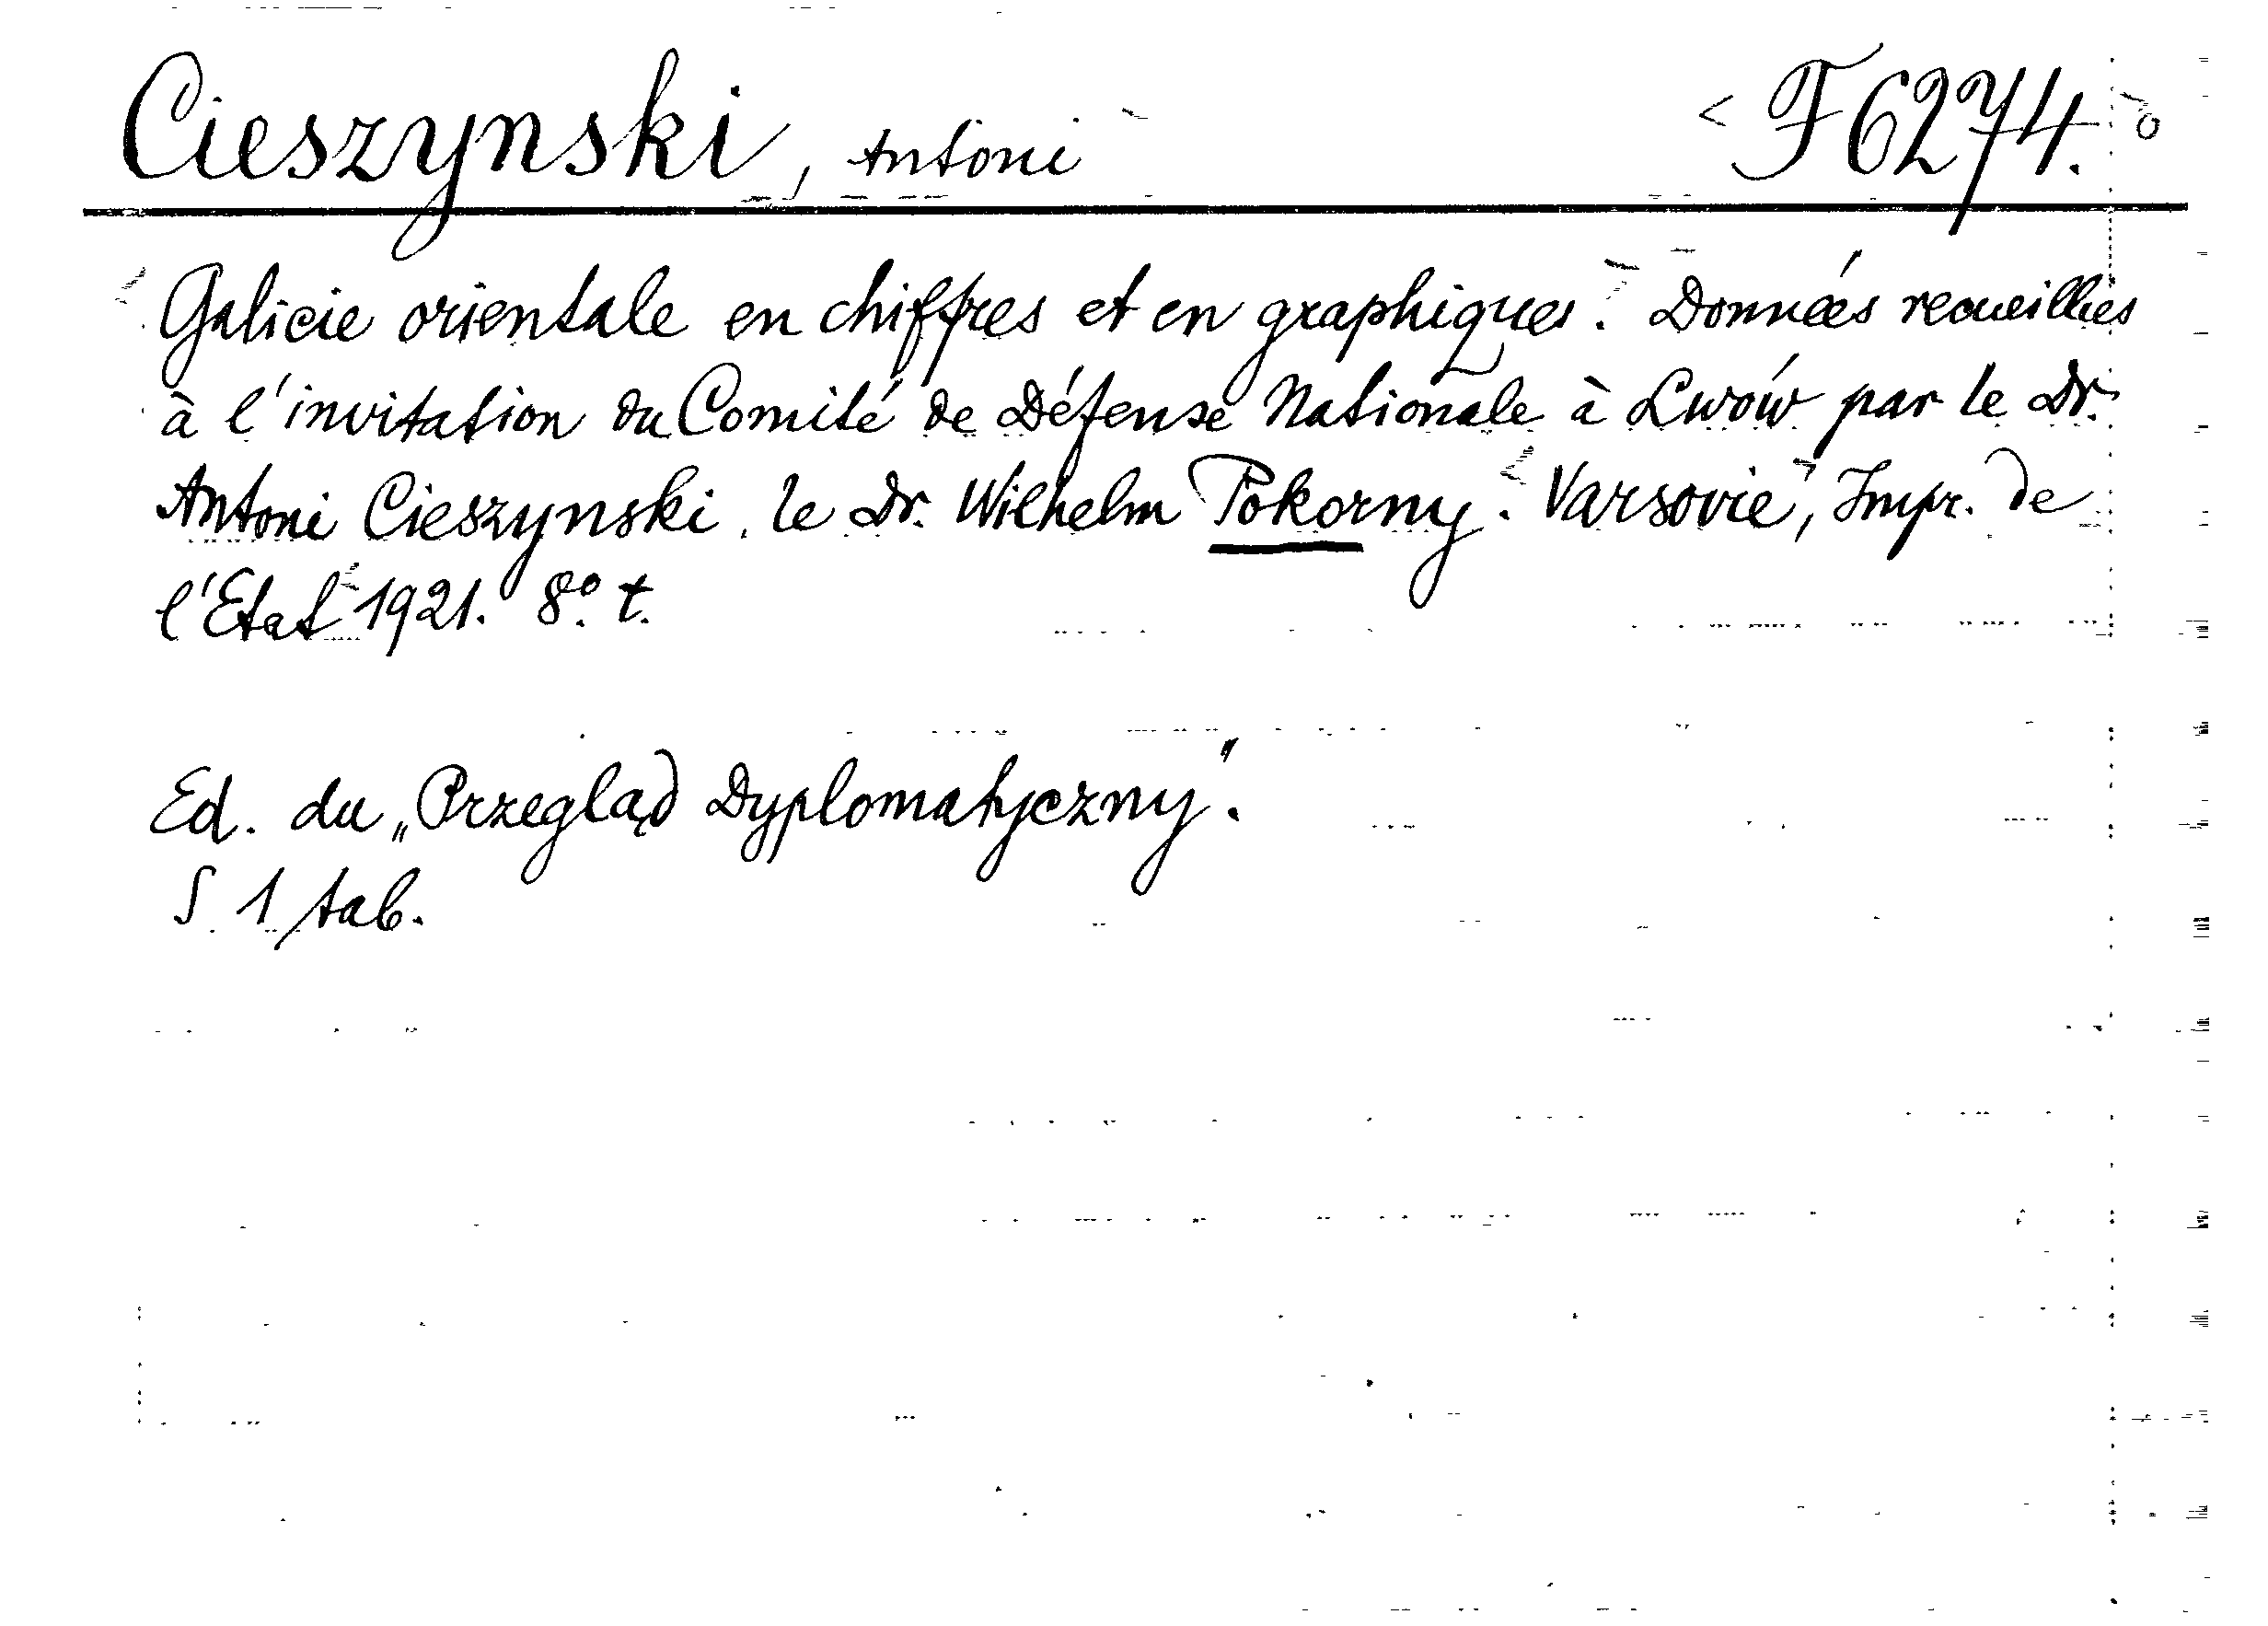 Cieszynski, Antoni F6274.
Galicie orientale en chiffres et en graphiques. Données recueillies
à l'invitation du Comité de Défense Nationale à Lwów par le Dr.
Antoni Cieszynski, le Dr. Wilhelm Pokorny. Varsovie, Impr. de
l'Etat 1921. 8º. t.
Ed. du „Przegląd Dyplomatyczny".
S 1 tab.